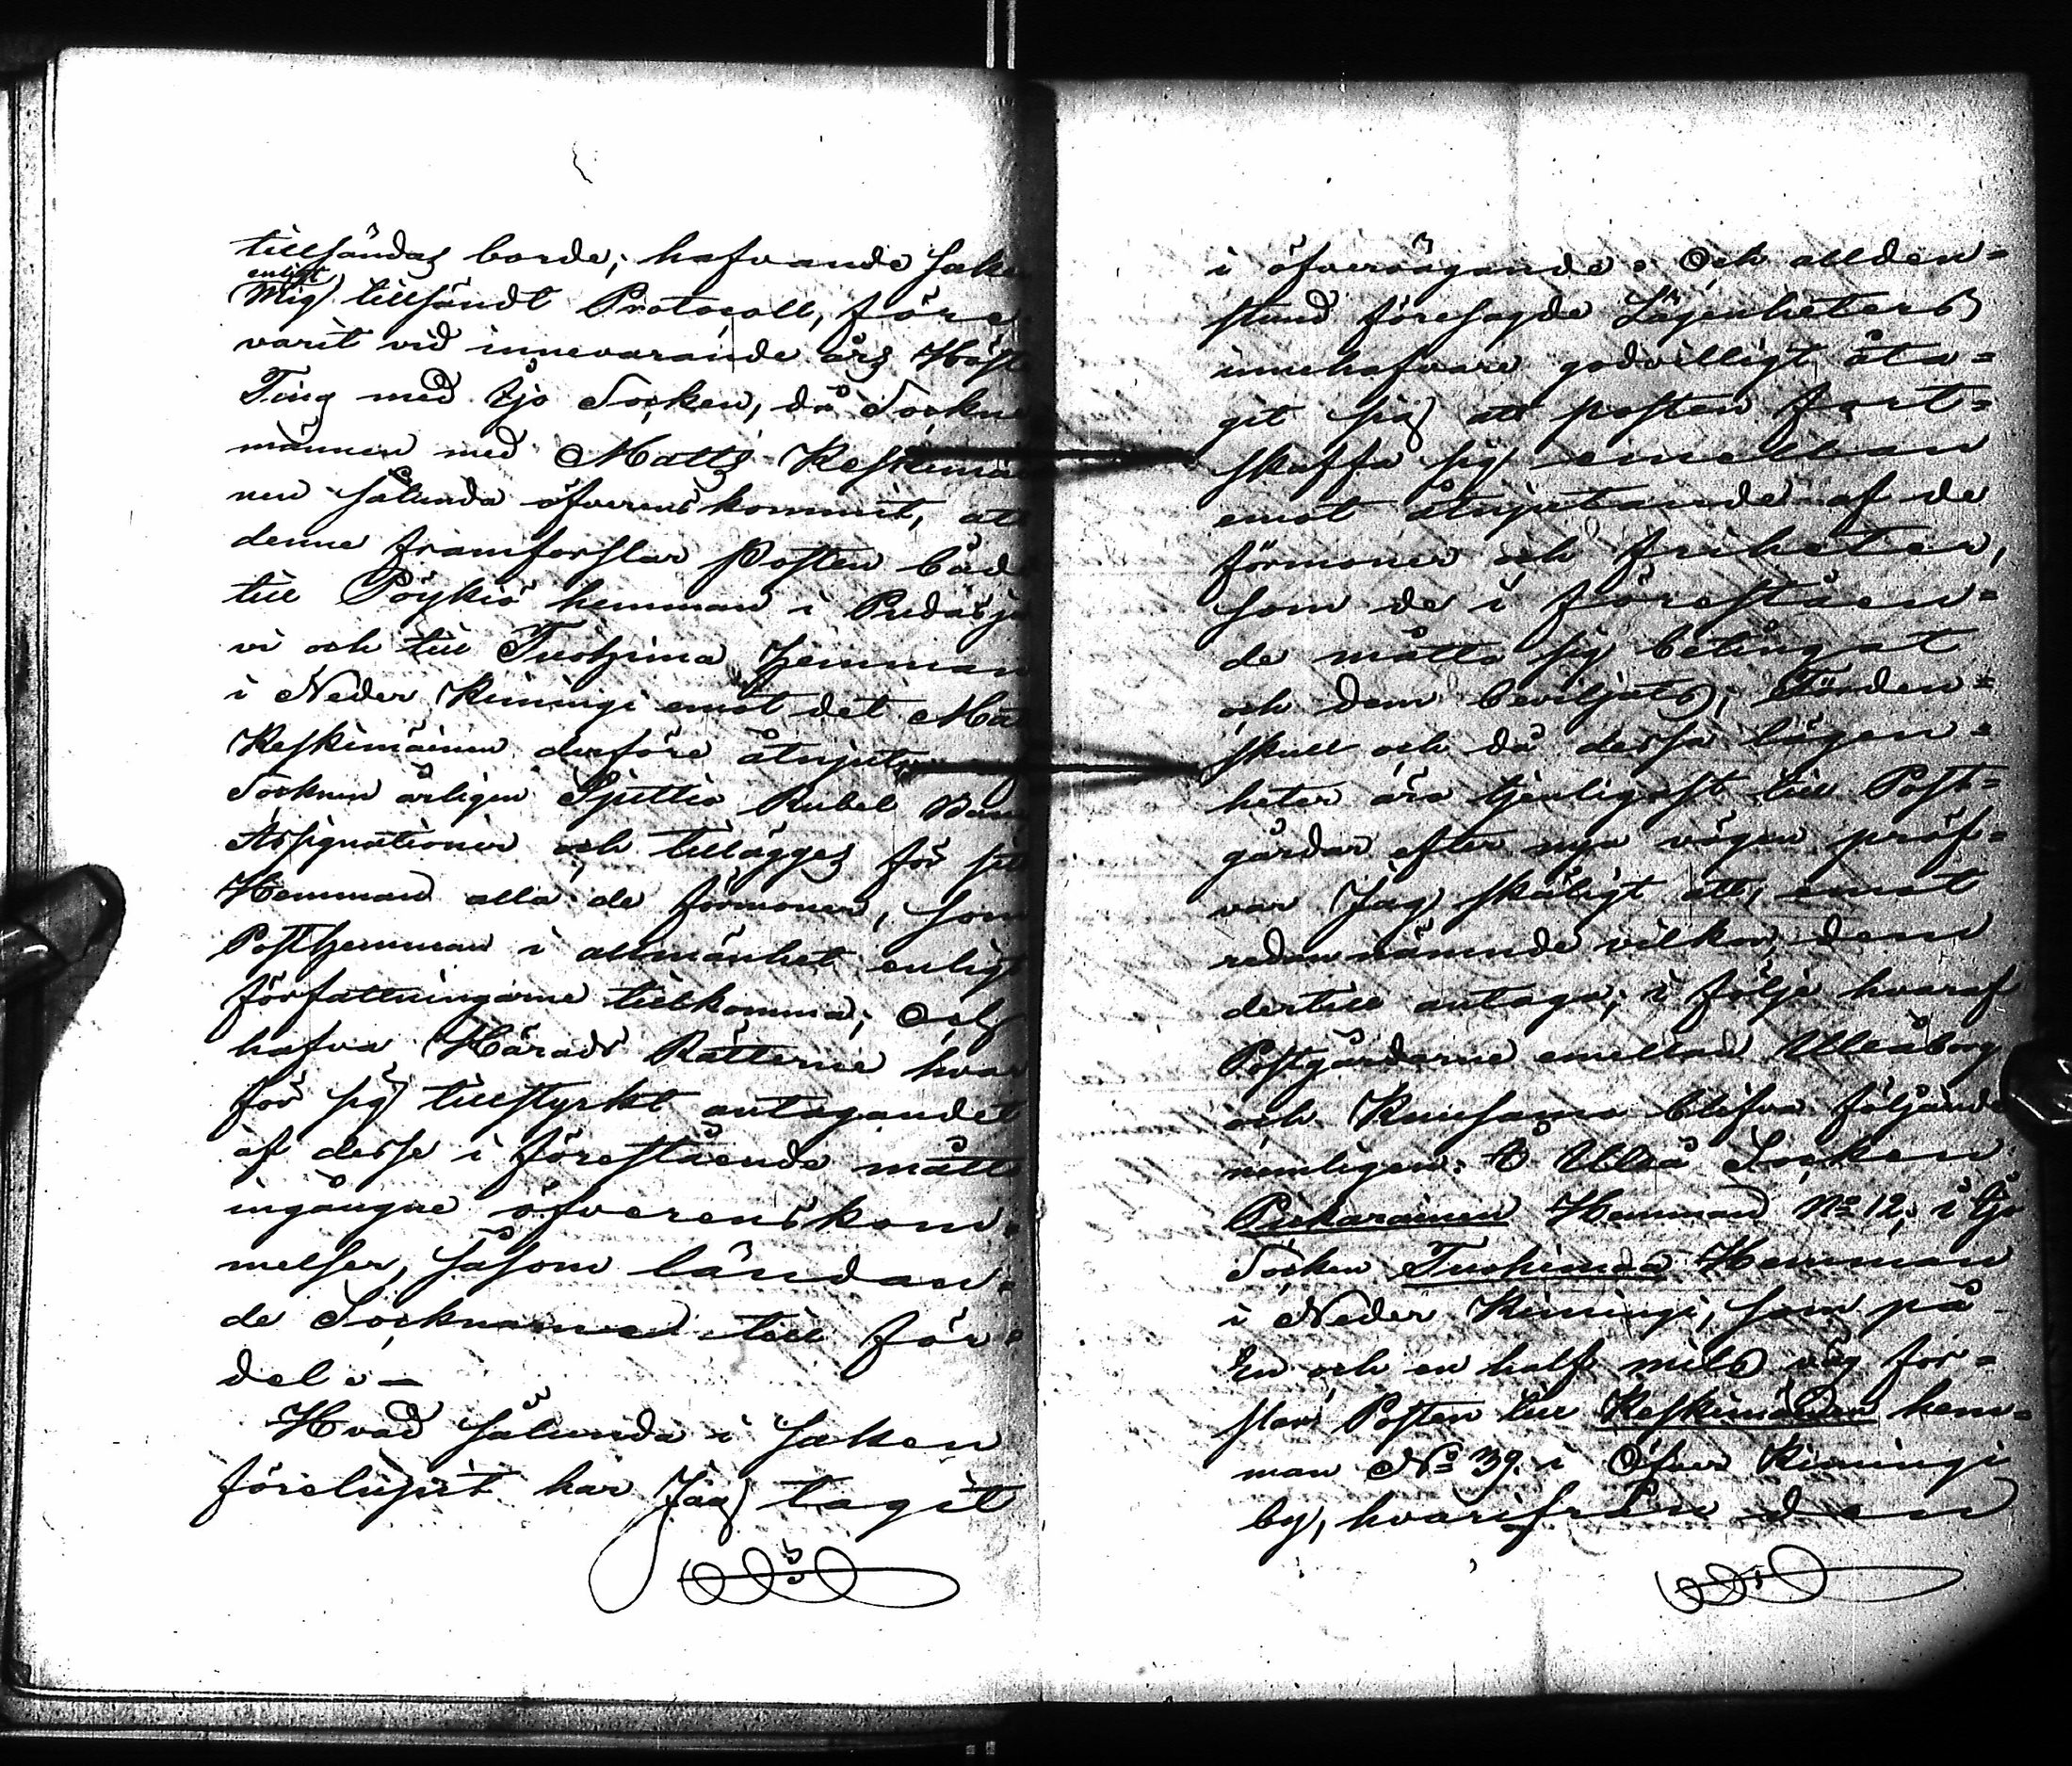 tillsändas borde; hafvande saken
enligt
Mig tillsändt Protocoll, före-
varit vid innevarande års Höste
Ting med Ijo Socken, då Sockne
männen med Matts Keskimäi
nen sålunda öfverenskommit, att
denne framforslar Posten både
till Pöykiö hemman i Pudasjer
vi och till Tuohima hemman
i Neder Kiimingi emot det Matts
Keskimäinen derföre åtnjuter
Socknen årligen Sjuttio Rubel Banco
Assignationer och tillägges för sit
Hemman alla de förmoner, som
Posthemman i allmänhet enligt
författningarne tillkomma; Och
hafva Härads Rätterne hvar
för sig tillstyrkt antagandet
af desse i förestående mått
ingångne öfverenskom-
melser, såsom ländan-
de Socknarne till för-
del.-
Hvad sålunda i saken
förelupit har Jag tagit
i öfvervägande. Och allden-
stund föresagde Lägenheters
innehafvare godvilligt åta-
git sig att posten fort-
skaffa sig emellan
emot åtnjutande af de
förmoner och friheter,
som de i förestäen-
de måtto sig betingat
och dem beviljats; Förden-
skull och då dessa lägen-
heter äro tjenligast till Post-
gårdar efter nya vägen pröf-
var Jag skäligt att, emot
redan nämnde vilkor, dem
dertill antaga; i följe hvaraf
Postgårdarne emellan Uleåborg
och Kuusamo blifva följande
nemligen: I Uleå Socken
Pickarainen Hemman No 12; i Ijo
Socken Tuohimaa Hemman
i Neder Kimingi, som på
En och en half mils väg for-
slar Posten till Keskimäinen hem-
man No 39. i Öfver Kiimingi
by, hvarifrån den